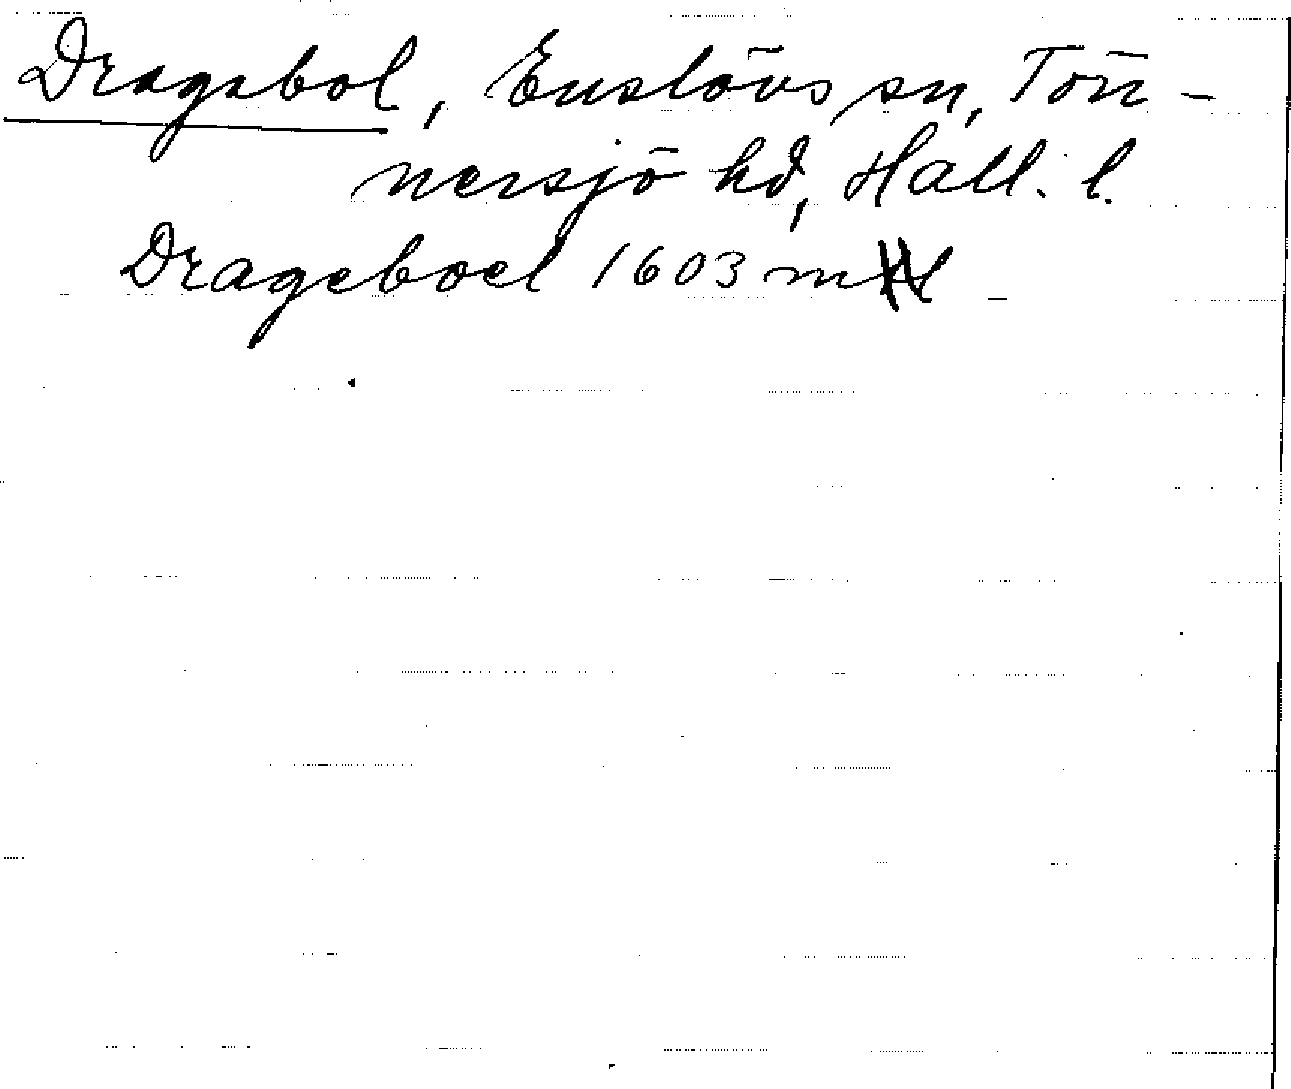 Dragabol, Enslövs sn, Tön-
nersjö hd, Hall. l.
Drageboel 1603